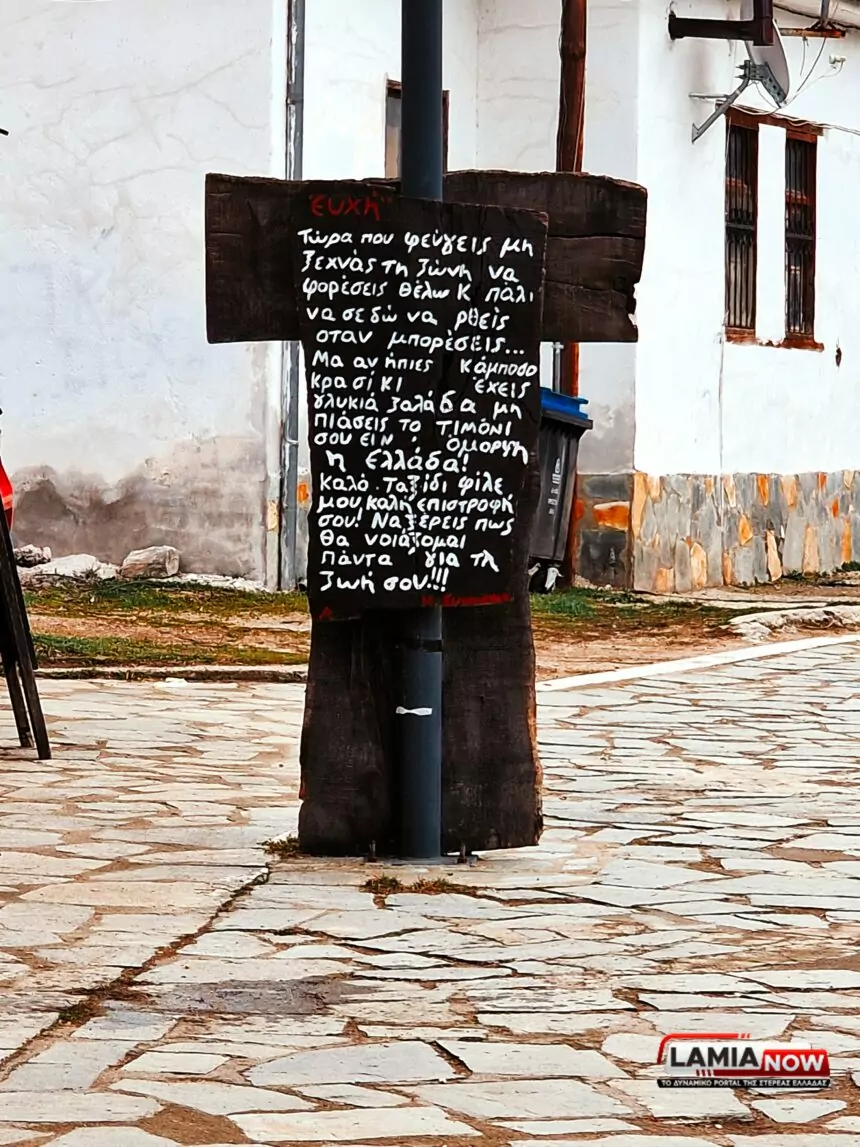 "ΕΥΧΗ"
Τώρα που φεύγεις μη
ξεχνάς τη ζώνη να
φορέσεις θέλω Κ πάλι
να σε δώ να ρθείς
οταν μπορέσεις...
Μα αν ήπιες κάμποσο
κρασί ΚΙ έχεις
γλυκιά ζαλάδα μη
πιάσεις το τιμόνι
σου ειν' όμορφη
η Ελλάδα!
Καλό ταξίδι φίλε
μου καλή επιστροφή
σου! Να ξέρεις πως
θα νοιάζομαι
πάντα για τη
ζωή σου!!!
LAMIA NOW
ΤΟ ΔΥΝΑΜΙΚΟ PORTAL ΤΗΣ ΣΤΕΡΕΑΣ ΕΛΛΑΔΑΣ